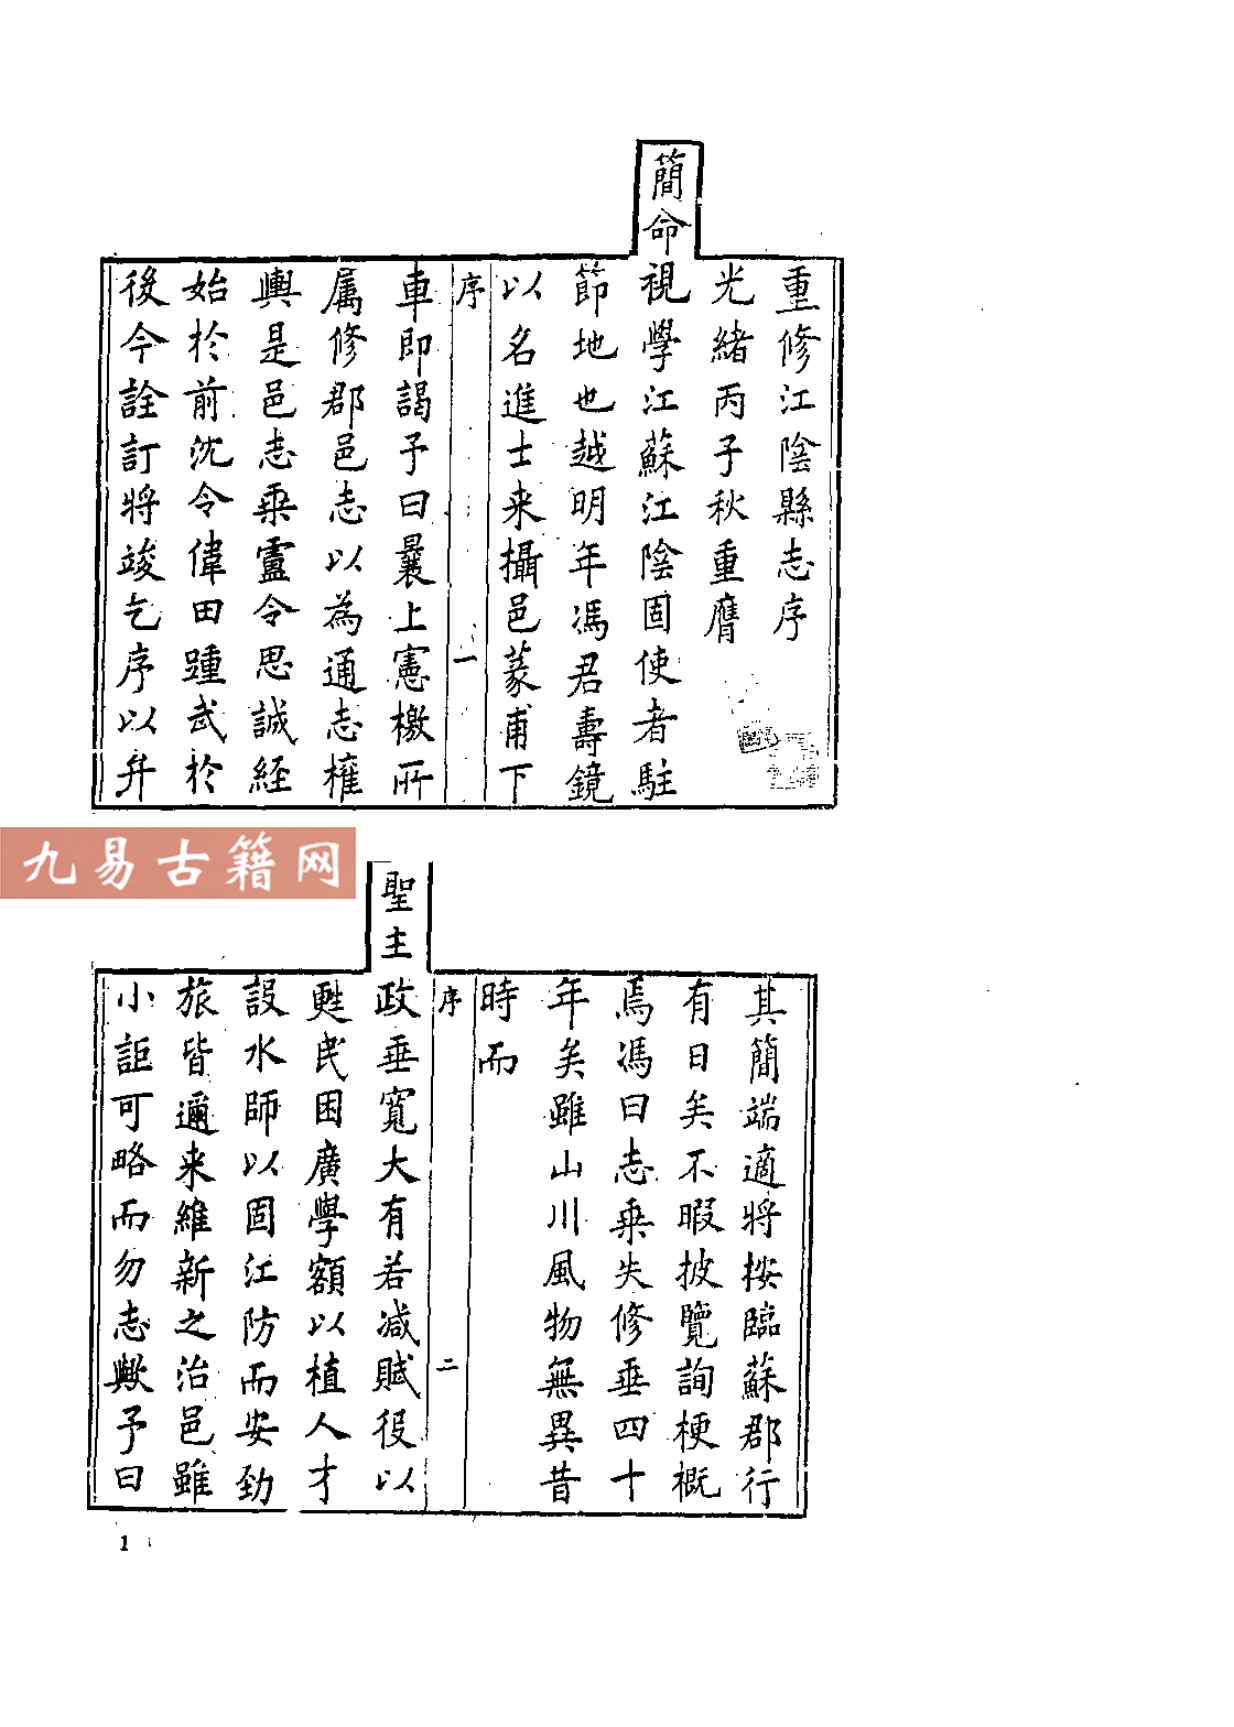 重修江陰縣志序
光緒丙子秋重膺
簡命視學江蘇江陰固使者駐
節地也越明年馮君壽鏡
以名進士来攝邑蒃甫下
序 一
車即謁予曰曩上憲檄所
属修郡邑志以為通志權
輿是邑志乗盧令思誠経
始於前沈令偉田踵武於
後今詮訂將竣乞序以弁
九易古籍网
其簡端適將按臨蘇郡行
有日矣不暇披覽詢梗概
焉馮曰志乗失修垂四十
年矣雖山川風物無異昔
時而
序 二
聖主政垂寬大有若減賦役以
甦民困廣學額以植人才
設水師以固江防而安勁
旅皆邇来維新之治邑雖
小詎可略而勿志歟予曰
1